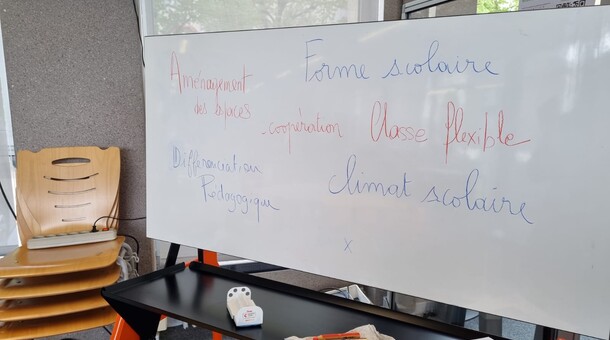 Forme scolaire
Aménagement
des espaces
coopération
Classe flexible
Différenciation
Pédagogique
climat scolaire
x